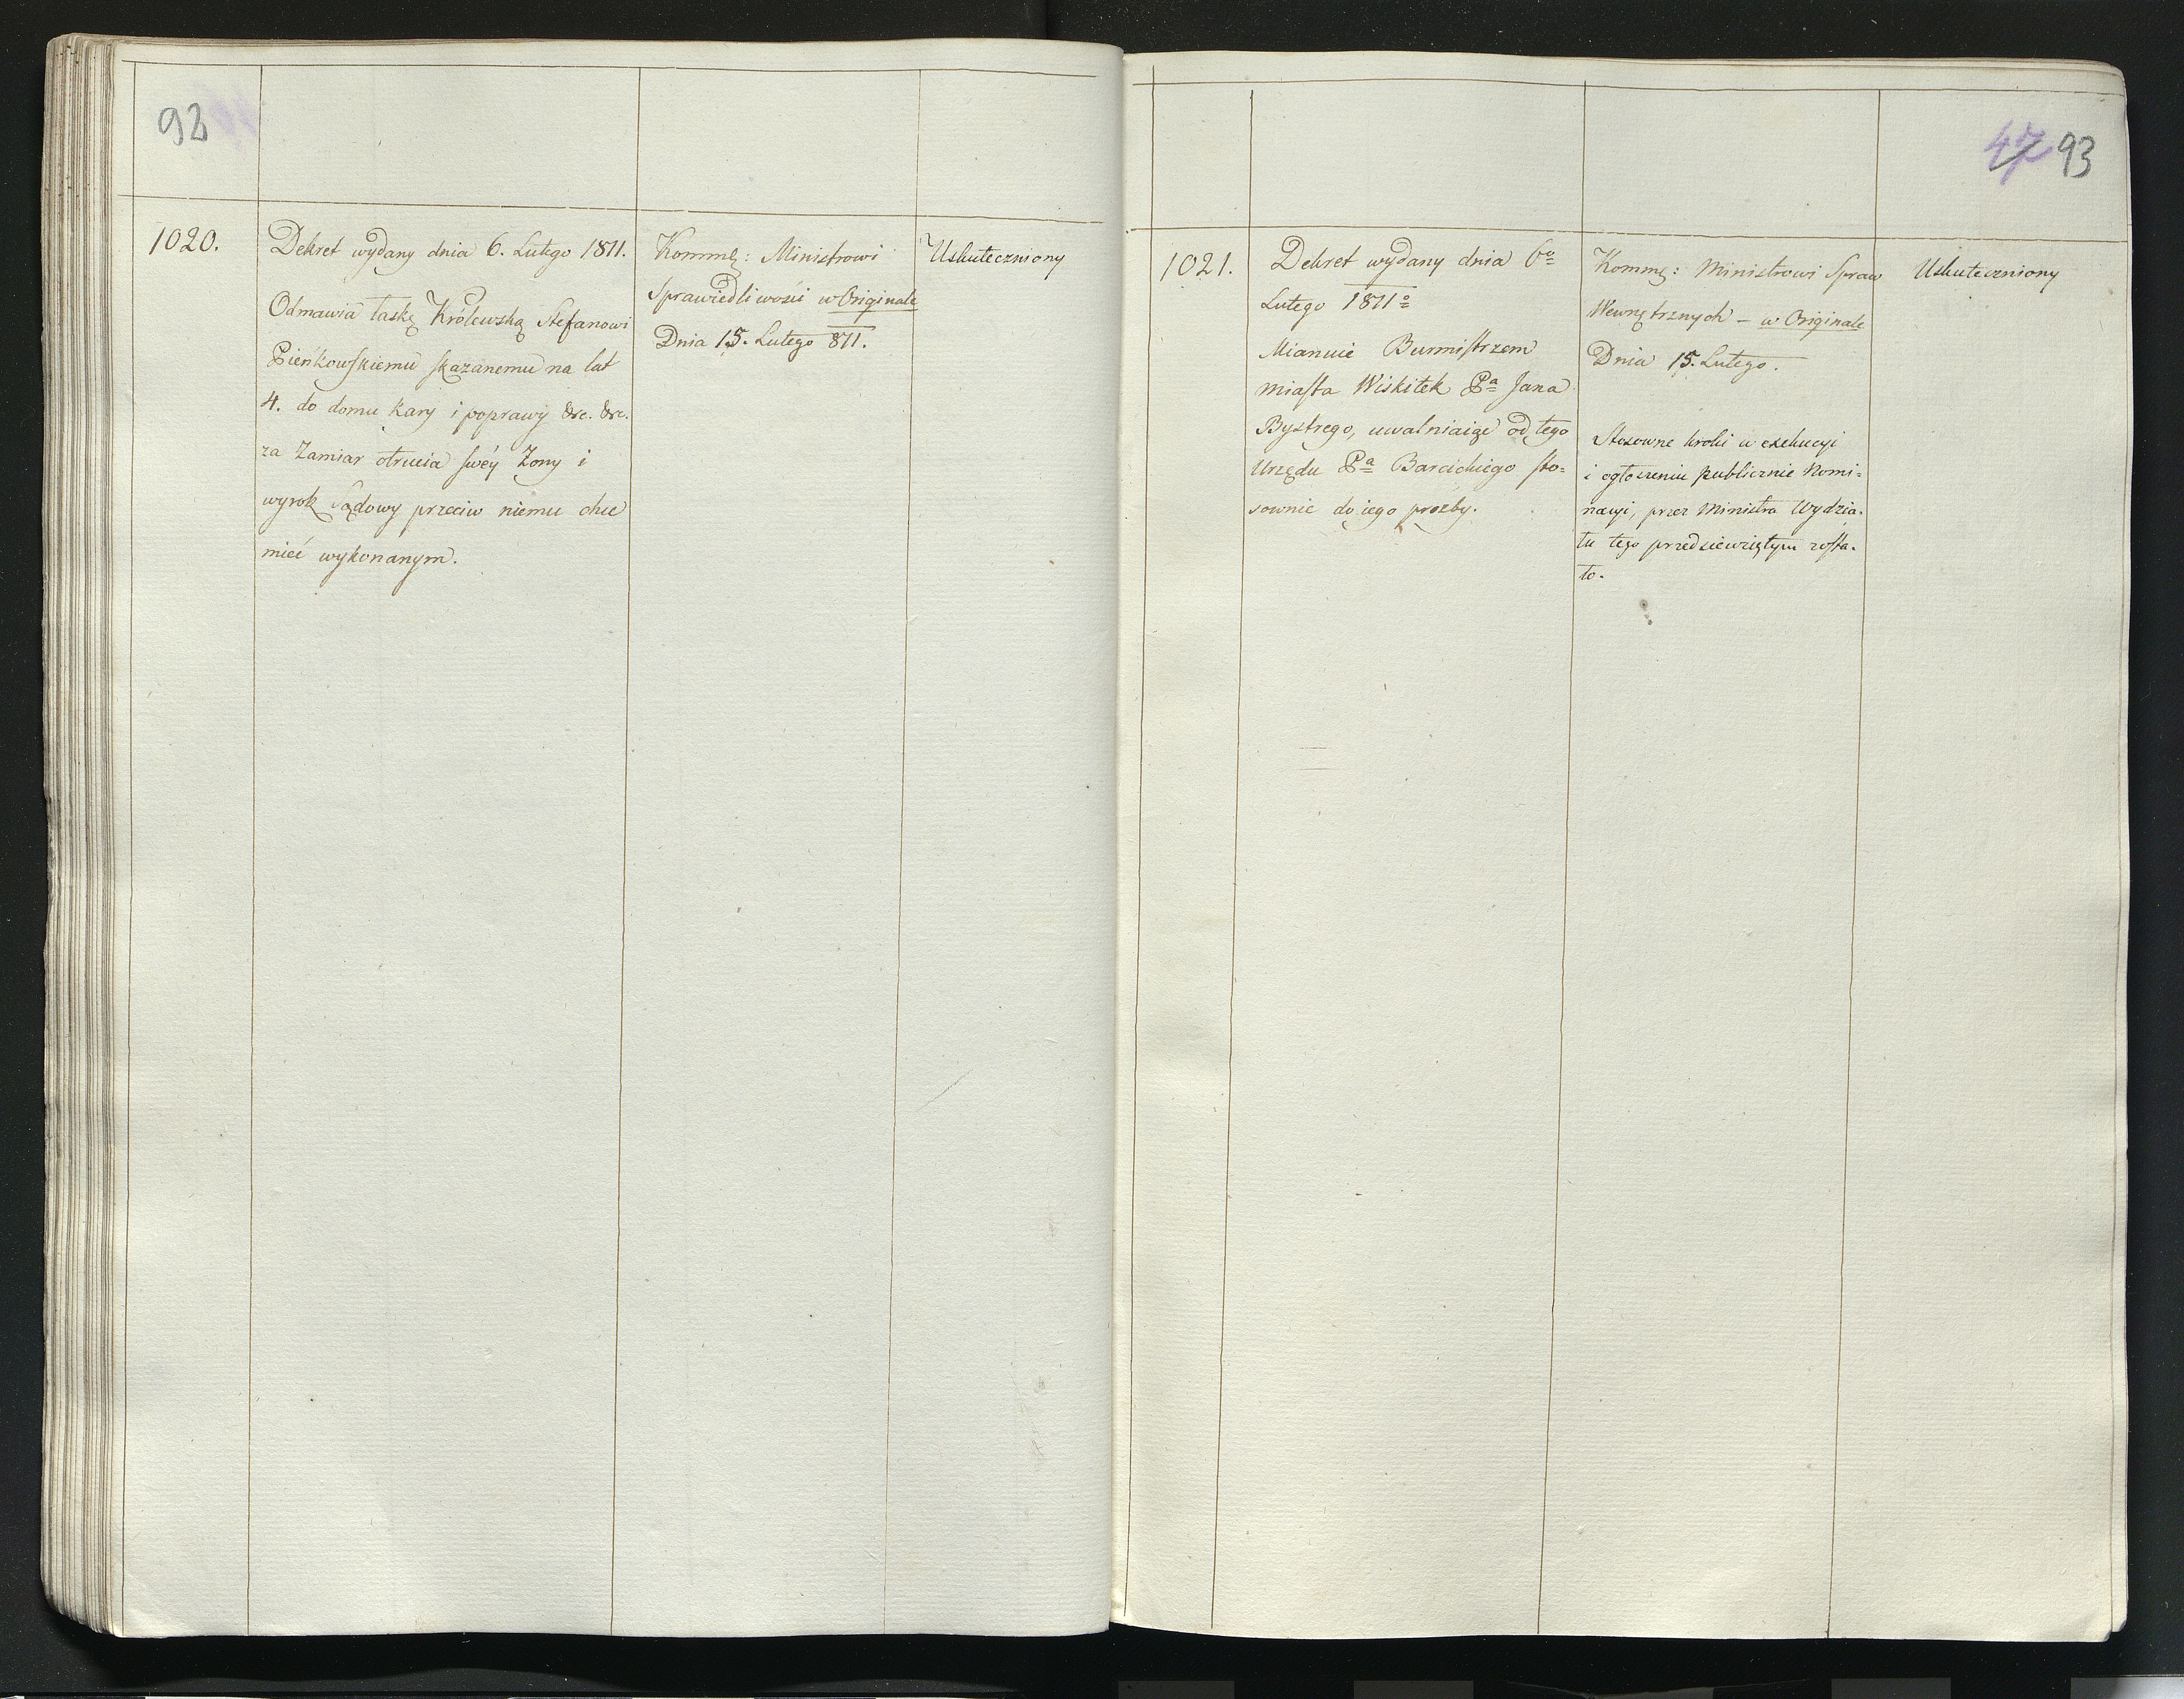 92
1020.
Dekret wydany dnia 6. Lutego 1811.
Odmawia łaskę Królewską Stefanowi
Pieńkowskiemu skazanemu na lat
4. do domu kary i poprawy &c. &c.
za Zamiar otrucia swéy Żony i
wyrok Sądowy przeciw niemu chce
mieć wykonanym.
Kommę: Ministrowi
Sprawiedliwości w Originale
Dnia 15. Lutego 811.
Uskuteczniony
47 93
1021.
Dekret wydany dnia 6o
Lutego 1811o
Mianuie Burmistrzem
miasta Wiskitek Pa Jana
Bystrego, uwalniaiąc od tego
Urzędu Pa Barcickiego sto=
sownie do iego prozby.
Kommę: Ministrowi Spraw
Wewnętrznych - w Originale
Dnia 15. Lutego.
Stosowne kroki w exekucyi
i ogłoszeniu publicznie Nomi=
nacyi, przez Ministra Wydzia-
łu tego przedsiewziętym zosta-
ło.
Uskuteczniony